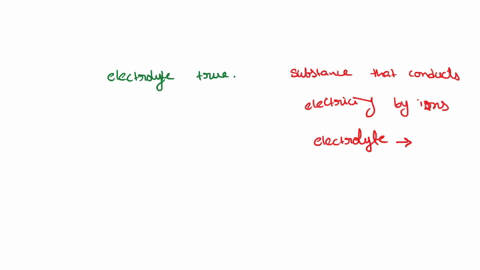 electrolyte true.
substance that conducts
electricity by ions
electrolyte →